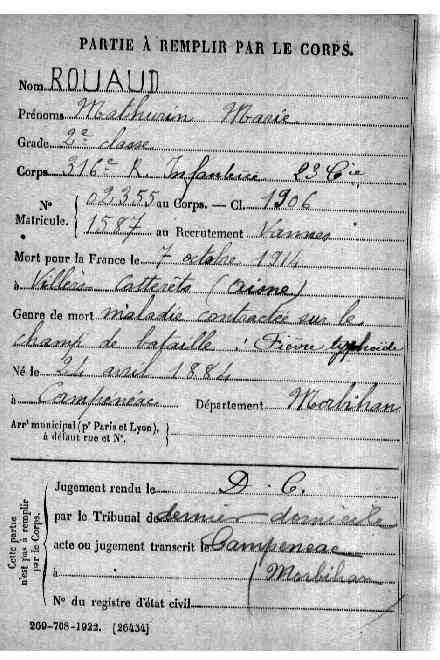 PARTIE À REMPLIR PAR LE CORPS.
Nom ROUAUD
Prénoms Mathurin Marie
Grade 2e classe
Corps 316e R. Infanterie 23 Cie
N° Matricule. { 02355 au Corps. — Cl. 1906
1587 au Recrutement Vannes
Mort pour la France le 7 octobre 1914
à Villers Cotterêts (Aisne)
Genre de mort maladie contractée sur le
champ de bataille : Fièvre typhoïde
Né le 24 avril 1884
à Campeneac Département Morbihan
Arrt municipal (pr Paris et Lyon),
à défaut rue et N°. }
Cette partie n'est pas à remplir par le Corps.
Jugement rendu le D. C.
par le Tribunal de dernier domicile
acte ou jugement transcrit le Campeneac
à (Morbihan
N° du registre d'état civil
269-708-1922. [26434]